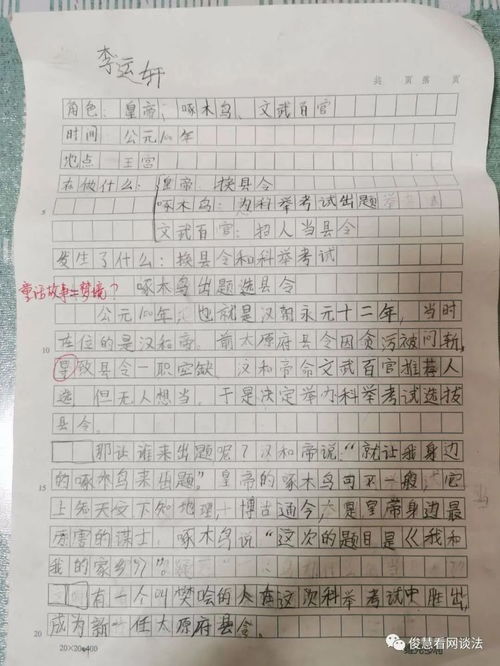 李运轩
共 页 第 页
角色：皇帝、啄木鸟、文武百官
时间：公元100年
地点：王宫
在做什么：皇帝：换县令
5
啄木鸟：为科举考试出题
文武百官：招人当县令
发生了什么：换县令和科举考试
童话故事=梦境？
啄木鸟出题选县令
公元100年，也就是汉朝永元十二年，当时
10
在位的是汉和帝。前太原府县令因贪污被问斩，
导致县令一职空缺。汉和帝命文武百官推荐人
选，但无人想当，于是决定举办科举考试选拔
县令。
那让谁来出题呢？汉和帝说：“就让我身边
15
的啄木鸟来出题。”皇帝的啄木鸟可不一般，它
上知天文下知地理，博古通今，是皇帝身边最
厉害的谋士。啄木鸟说：“这次的题目是《我和
我的家乡》”。
有一个叫樊哙的人在这次科举考试中胜出，
20
成为新一任太原府县令。
20×20=400
俊慧看网谈法